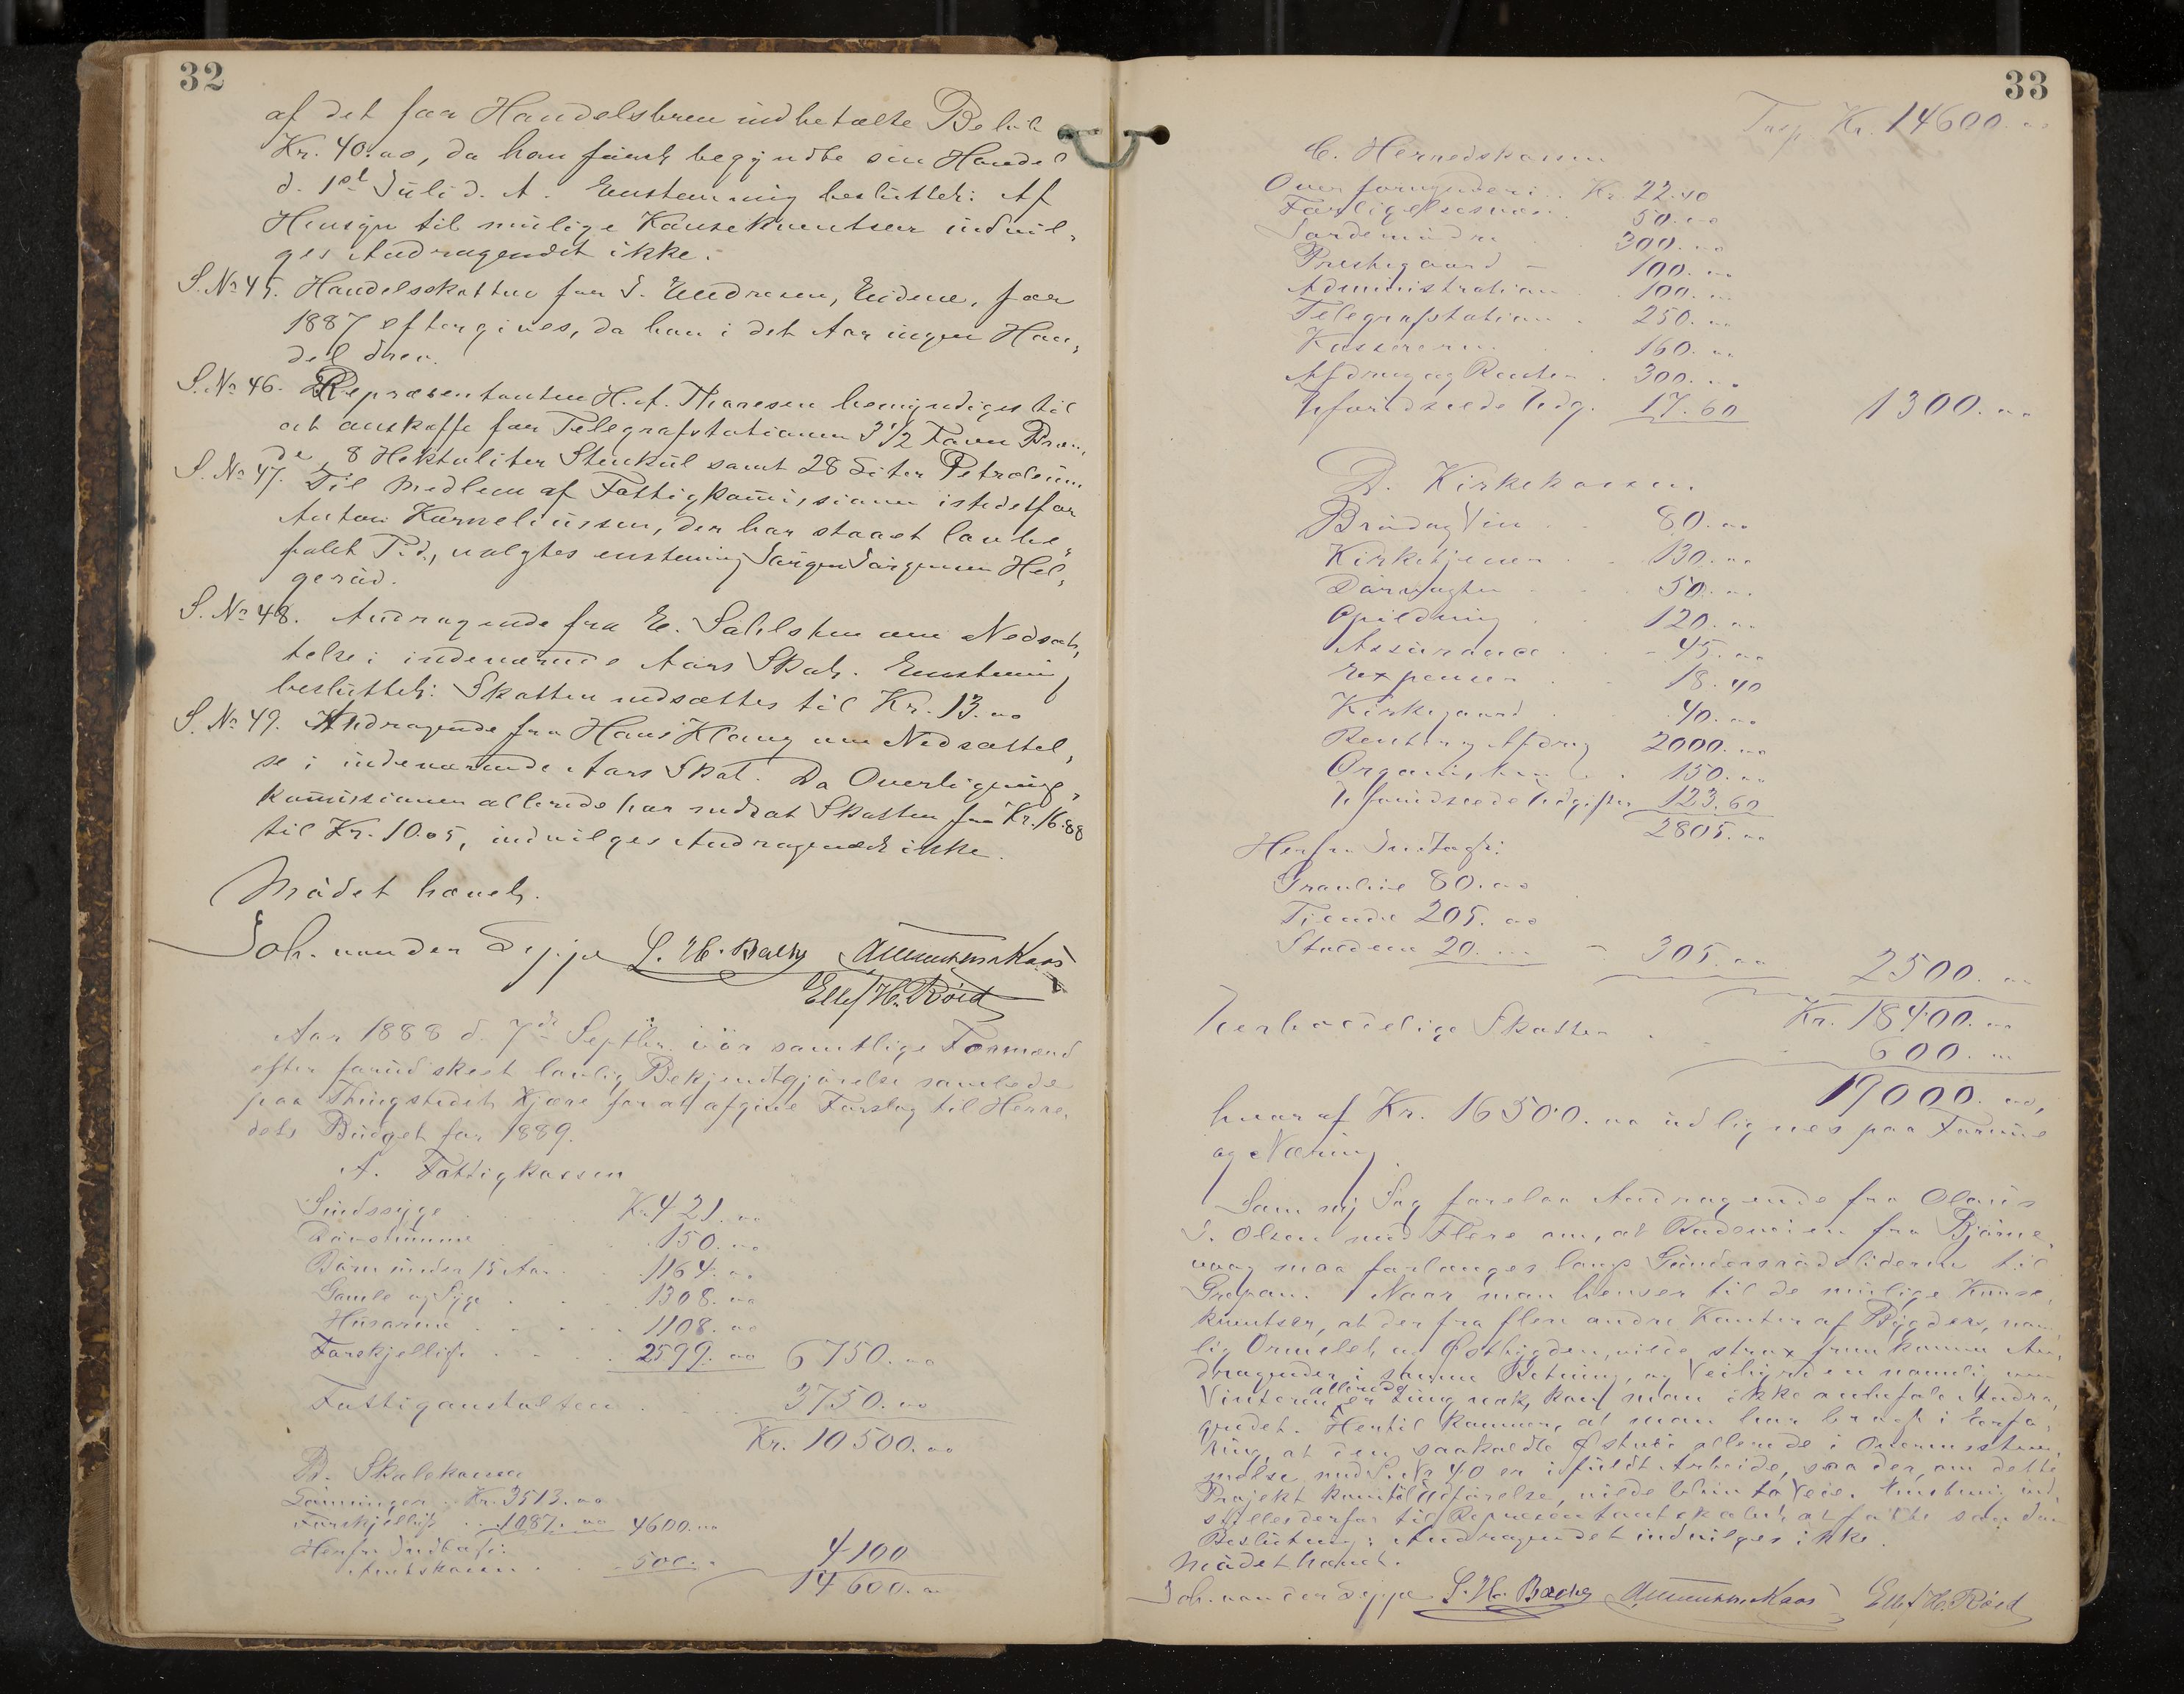 32
af det for Handelsbrev indbetalte Beløb
Kr. 40.00, da han først begyndte sin Handel
d. 1st Juli d. A. Enstemmig besluttet: Af
Hensyn til mulige Konsekventser indvil-
ges Andragendet ikke.
S. No 45. Handelsskatten for J. Endresen, Eidene, for
1887 eftergives, da han i det Aar ingen Han-
del drev.
S. No 46. Repræsentanten H. A. Thoresen bemyndiges til
at anskaffe for Telegrafstationen 3 1/2 Favn Bræn-
de, 8 Hektoliter Stenkul samt 28 Liter Petroleum.
S. No 47. Til Medlem af Fattigkommissionen istedetfor
Anton Korneliussen, der har staaet lovbe-
falet Tid, valgtes enstemmig Jørgen Jørgensen Hel-
gerød.
S. No 48. Andragende fra E. Sølilsten om Nedsæt-
telse i indeværende Aars Skat. Enstemmig
besluttet: Skatten nedsættes til Kr. 13.00
S. No 49. Andragende fra Hans Klang om Nedsættel-
se i indeværende Aars Skat. Da Overligning-
kommissionen allerede har nedsat Skatten fra Kr. 16.88
til Kr. 10.05, indvilges Andragendet ikke.
Mødet hævet.
Joh. van der Lippe S. H. Bache Amundsen Kaas
Ellef H. Röed
Aar 1888 d. 7de Septbr. var samtlige Formænd
efter forud skeet lovlig Bekjendtgjørelse samlede
paa Thingstedet Kjære for at afgive Forslag til Herre-
dets Budget for 1889.
A. Fattigkassen
Sindssyge Kr. 421.00
Døvstumme 150.00
Børn under 15 Aar 1164.00
Gamle og Syge 1308.00
Husarme 1108.00
Forskjelligt 2599.00 6750.00
Fattiganstalten 3750.00
Kr. 10500.00
B. Skolekassen
Lønninger Kr. 3513.00
Forskjelligt 1087.00 4600.00
Herfra Indtægt:
Amtskassen 500. 4100
14600.00
33
Trsp. Kr. 14600.00
C. Herredskassen
Over formynderi Kr. 22.40
Forligelsesvæsen 50.00
Jordemødre 300.00
Prestegaard 100.00
Administration 100.00
Telegrafstation 250.00
Kassereren 160.00
Afdrag og Renter 300.00
Uforudseede Udg. 17.60 1300.00
D. Kirkekassen
Brød og Vin 80.00
Kirketjener 130.00
Dørvagten 50.00
Opildning 120.00
Assurance 45.00
Expenser 18.40
Kirkegaard 40.00
Renter og Afdrag 2000.00
Organisten 150.00
Uforudseede Udgifter 123.60
2805.00
Herfra Indtægt:
Gravleie 80.00
Tiende 205.00
Stoleleie 20. 305.00 2500.00
Kr. 18400.00
Uerholdelige Skatter 600.00
19000.00,
hvoraf Kr. 16500.00 udlignes paa Formue
og Næring
Som ny Sag forelaa Andragende fra Olaus
J. Olsen med Flere om, at Rodeveien fra Bjørne-
vaag maa forlænges langs Gundersrødsliderne til
Gropan. Naar man henser til de mulige Konse-
kventser, at der fra flere andre Kanter af Bygden, nem-
lig Ormelet og Østbygden, vilde strax fremkomme An-
dragender i samme Retning, og Veibyrden nemlig om
Vinteren er allerede tung nok, kan man ikke anbefale Andra-
gendet. Hertil kommer, at man har bragt i Erfa-
ring, at den saakaldte Østvei allerede i Overensstem-
melse med S. No 40 er i fuldt Arbeide, saa der, om dette
Projekt kom til Udførelse, vilde blive to Veie. Enstemmig ind-
stilles derfor til Repræsentantskabet at fatte saadan
Beslutning: Andragendet indvilges ikke.
Mødet hævet.
Joh. van der Lippe S. H. Bache Amundsen Kaas Ellef H. Röed